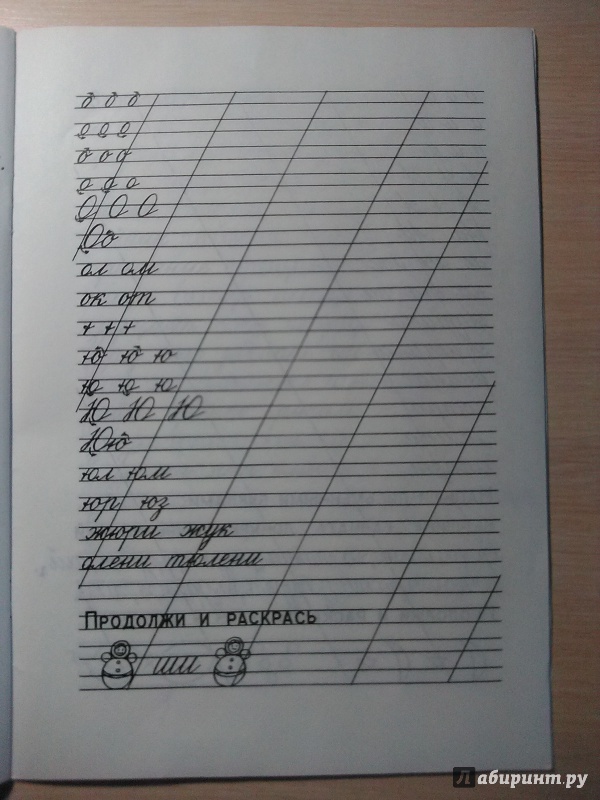 о о о
о о о
о о о
о о о
О О О
Оо
ол ом
ок от
+ + +
ю ю ю
ю ю ю
Ю Ю Ю
Юю
юл юм
юр юз
жюри жук
олени тюлени
ПРОДОЛЖИ И РАСКРАСЬ
ши
Лабиринт.ру